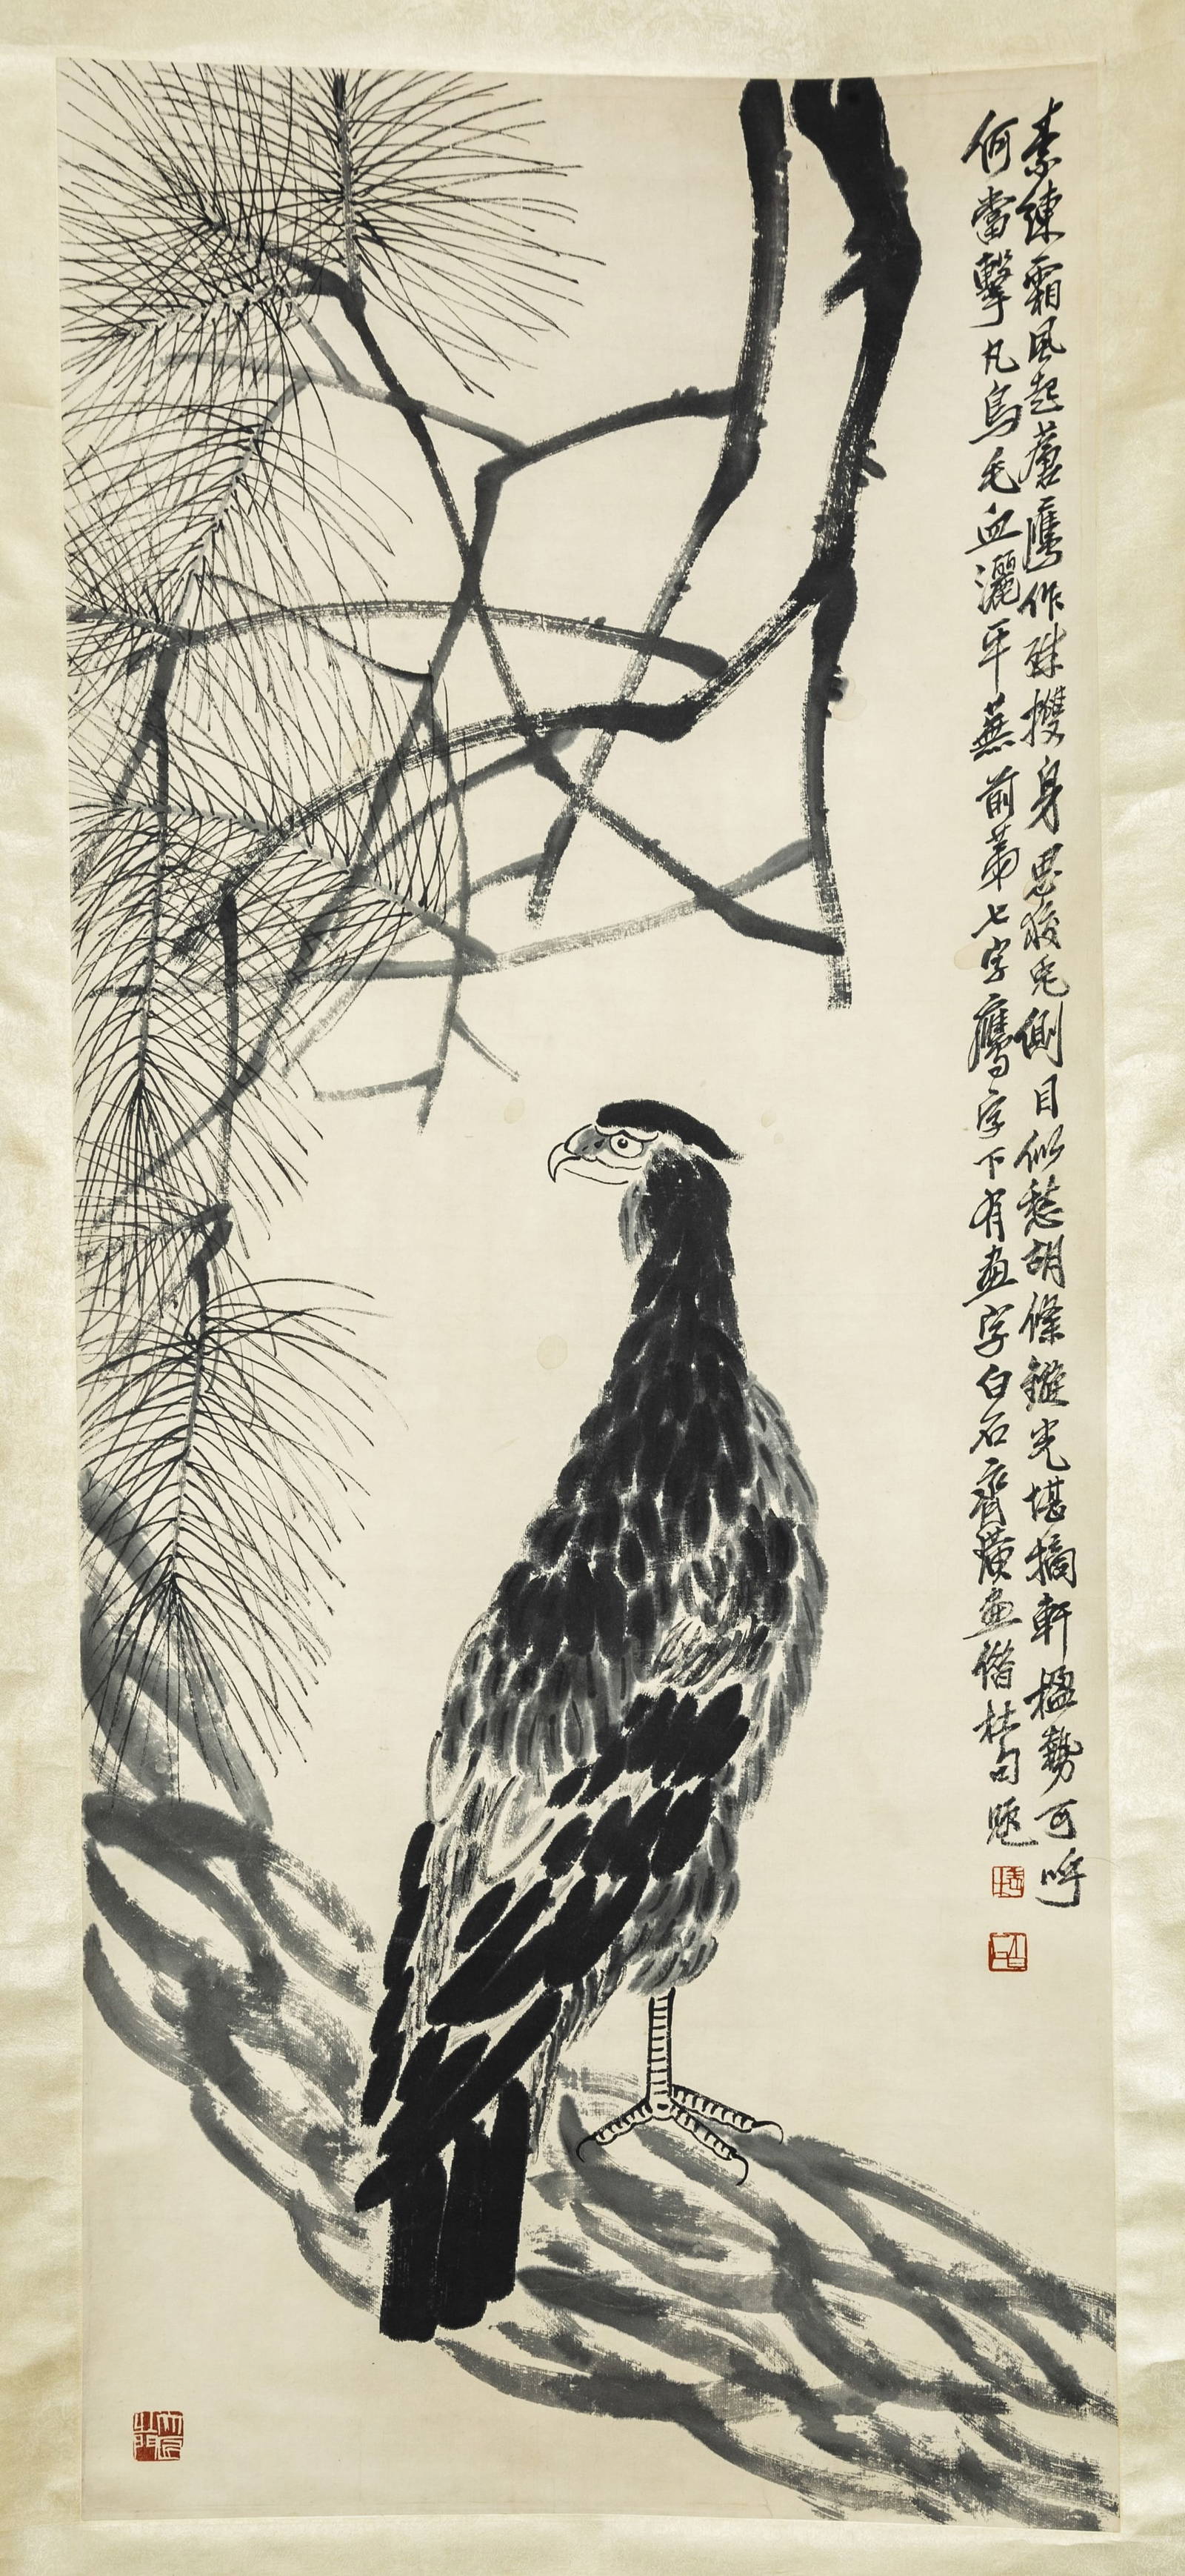 素練霜風起蒼鷹作殊㩳身思狡兔側目似愁胡絛鏇光堪摘軒楹勢可呼
何當擊凡鳥毛血灑平蕪前第七字鷹字下有畫字白石齊璜畫借杜句題
大匠之門